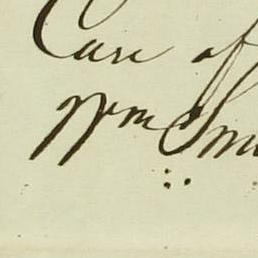 Care of
Wm Smi